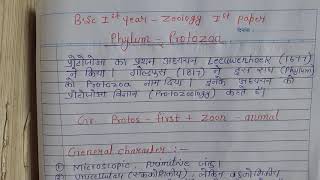 B.Sc Ist year - Zoology Ist paper
Phylum - Protozoa
प्रोटोजोआ का प्रथम अध्ययन Leeuwenhoek (1677)
ने किया। गोल्डफस (1817) ने इस संघ (Phylum)
को Protozoa नाम दिया। इनके अध्ययन को
प्रोटोजोआ विज्ञान (Protozoology) कहते हैं।
Gr. Protos - first + zoon - animal
General character :-
① Microscopic, Primitive जंतु।